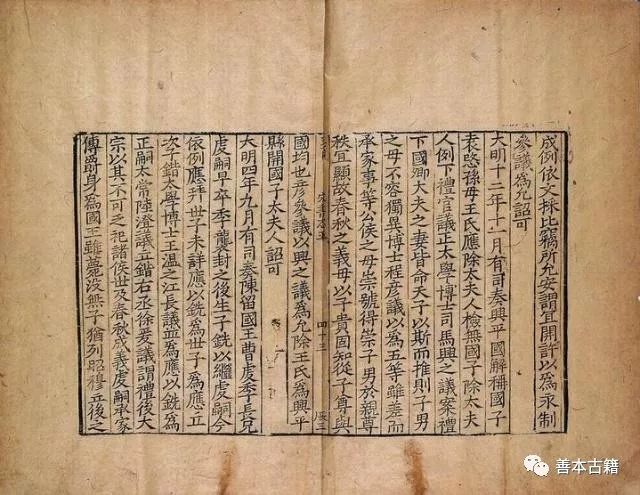 成例依文採比竊所允安謂宜開許以為永制
參議為允詔可
大明十二年十一月有司奏興平國解稱國子
袁愍孫母王氏應除太夫人檢無國子除太夫
人例下禮官議正太學博士司馬興之議案禮
下國卿大夫之妻皆命夫子以斯而推則子男
之母不容獨異博士程彥議以為五等雖差而
承家事等公侯之母崇號得崇子男於親尊
秩宜顯故春秋之義母以子貴固知從子尊與
宋書志五 四十三
國均也彥參議以興之議為允除王氏為興平
縣開國子太夫人詔可
大明四年九月有司奏陳留國王曹虔季長兄
虔嗣早卒季襲封之後生子銑以繼虔嗣今
依例應拜世子未詳應以銑為世子為應立
次子錯太學博士王溫之江長議並為應以銑為
正嗣太常陸澄議立錯右丞徐爰議謂禮後大
宗以其不可乏祀諸侯世及春秋成義虔嗣承家
傳爵身為國王雖薨沒無子猶列昭穆立後之
善本古籍